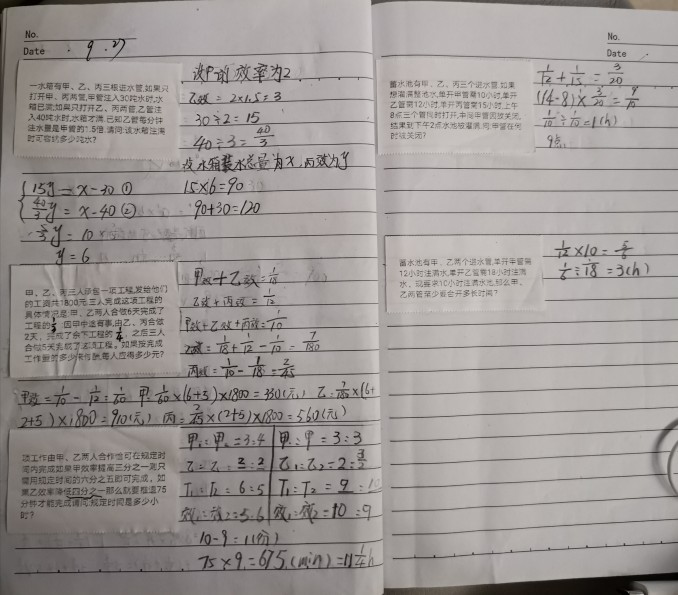 No.
Date . 9.27
一水箱有甲、乙、丙三根进水管,如果只
打开甲、丙两管,甲管注入30吨水时,水
箱已满;如果只打开乙、丙两管,乙管注
入40吨水时,水箱才满.已知乙管每分钟
注水量是甲管的1.5倍.请问:该水箱注满
时可容纳多少吨水?
设甲的效率为2
乙效=2×1.5=3
30÷2=15
40÷3=40/3
设水箱装水总量为x,丙效为y
15y=x-30 ①
40/3y=x-40 ②
5/3y=10
y=6
15×6=90
90+30=120
甲、乙、丙三人承包一项工程,发给他们
的工资共1800元.三人完成这项工程的
具体情况是:甲、乙两人合做6天完成了
工程的1/3,因甲中途有事,由乙、丙合做
2天,完成了余下工程的1/4,之后三人
合做5天完成了这项工程,如果按完成
工作量的多少来付酬,每人应得多少元?
甲效+乙效=1/18
乙效+丙效=1/12
甲效+乙效+丙效=1/10
乙效=1/18+1/12-1/10=7/180
丙效=1/10-1/18=2/45
甲效=1/10-1/12=1/60 甲:1/60×(6+5)×1800=330(元) 乙:7/180×(6+
2+5)×1800=910(元) 丙=2/45×(2+5)×1800=560(元)
项工作由甲、乙两人合作恰可在规定时
间内完成如果甲效率提高三分之一则只
需用规定时间的六分之五即可完成,如
果乙效率降低四分之一那么就要推迟75
分钟才能完成请问:规定时间是多少小
时?
甲:甲=3:4
T:T=6:5
效:效=5:6
甲:甲=3:3
乙:乙=2:3/2
T:T=9:10
效:效=10:9
10-9=1(份)
75×9=675(min)=11 1/4h
No.
Date
蓄水池有甲、乙、丙三个进水管,如果
想灌满整池水,单开甲管需10小时,单开
乙管需12小时,单开丙管需15小时.上午
8点三个管同时打开,中间甲管因故关闭,
结果到下午2点水池被灌满.问:甲管在何
时被关闭?
1/12+1/15=3/20
(14-8)×3/20=9/10
1/10÷1/10=1(h)
9点
蓄水池有甲、乙两个进水管,单开甲管需
12小时注满水,单开乙管需18小时注满
水,现要求10小时注满水池,那么甲、
乙两管至少要合开多长时间?
1/12×10=5/6
1/6÷1/18=3(h)